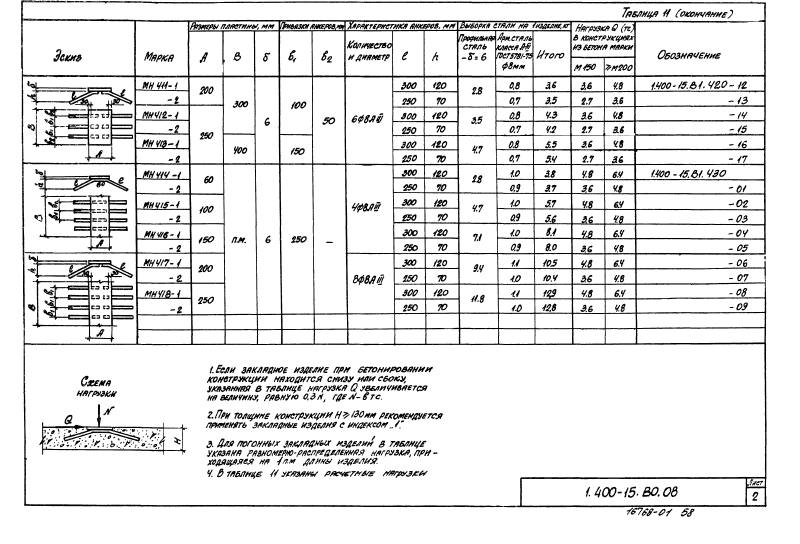 Таблица 11 (окончание)
Эскиз | Марка | Размеры пластины, мм | Привязки анкеров, мм | Характеристика анкеров, мм | Выборка стали на 1 изделие, кг | Нагрузка Q (тс) в конструкциях из бетона марки | Обозначение
А | В | б | в1 | в2 | Количество и диаметр | ℓ | h | Профильная сталь -δ=6 | Арм. сталь класса А-III ГОСТ 5781-75 ф8мм | Итого | М150 | ≥М200
МН 411-1 | 200 | 300 | 6 | 100 | 50 | 6ф8АIII | 300 | 120 | 2.8 | 0,8 | 3.6 | 3.6 | 4.8 | 1.400-15.В1.420-12
-2 | 250 | 70 | 0,7 | 3.5 | 2.7 | 3.6 | -13
МН412-1 | 250 | 300 | 120 | 3.5 | 0.8 | 4.3 | 3.6 | 4.8 | -14
-2 | 250 | 70 | 0,7 | 4.2 | 2.7 | 3.6 | -15
МН 413-1 | 400 | 150 | 300 | 120 | 4.7 | 0.8 | 5.5 | 3.6 | 4.8 | -16
-2 | 250 | 70 | 0,7 | 5.4 | 2.7 | 3.6 | -17
МН414-1 | 60 | п.м. | 6 | 250 | — | 4ф8АIII | 300 | 120 | 2.8 | 1.0 | 3.8 | 4.8 | 6.4 | 1.400-15.В1.430
-2 | 250 | 70 | 0.9 | 3.7 | 3.6 | 4.8 | -01
МН415-1 | 100 | 300 | 120 | 4.7 | 1.0 | 5.7 | 4.8 | 6.4 | -02
-2 | 250 | 70 | 0.9 | 5.6 | 3.6 | 4.8 | -03
МН416-1 | 150 | 300 | 120 | 7.1 | 1.0 | 8.1 | 4.8 | 6.4 | -04
-2 | 250 | 70 | 0.9 | 8.0 | 3.6 | 4.8 | -05
МН417-1 | 200 | 8ф8АIII | 300 | 120 | 9.4 | 1.1 | 10.5 | 4.8 | 6.4 | -06
-2 | 250 | 70 | 1.0 | 10.4 | 3.6 | 4.8 | -07
МН418-1 | 250 | 300 | 120 | 11.8 | 1.1 | 12,9 | 4.8 | 6.4 | -08
-2 | 250 | 70 | 1.0 | 12,8 | 3.6 | 4.8 | -09
Схема
нагрузки
N
Q
H
1. Если закладное изделие при бетонировании
конструкции находится снизу или сбоку,
указанная в таблице нагрузка Q увеличивается
на величину, равную 0,3 N, где N-в тс.
2. При толщине конструкции H ≥ 130 мм рекомендуется
применять закладные изделия с индексом „1."
3. Для погонных закладных изделий в таблице
указана равномерно-распределенная нагрузка, при-
ходящаяся на 1 п.м длины изделия.
4. В таблице 11 указаны расчетные нагрузки
1.400-15.В0.08
Лист
2
16768-01 58